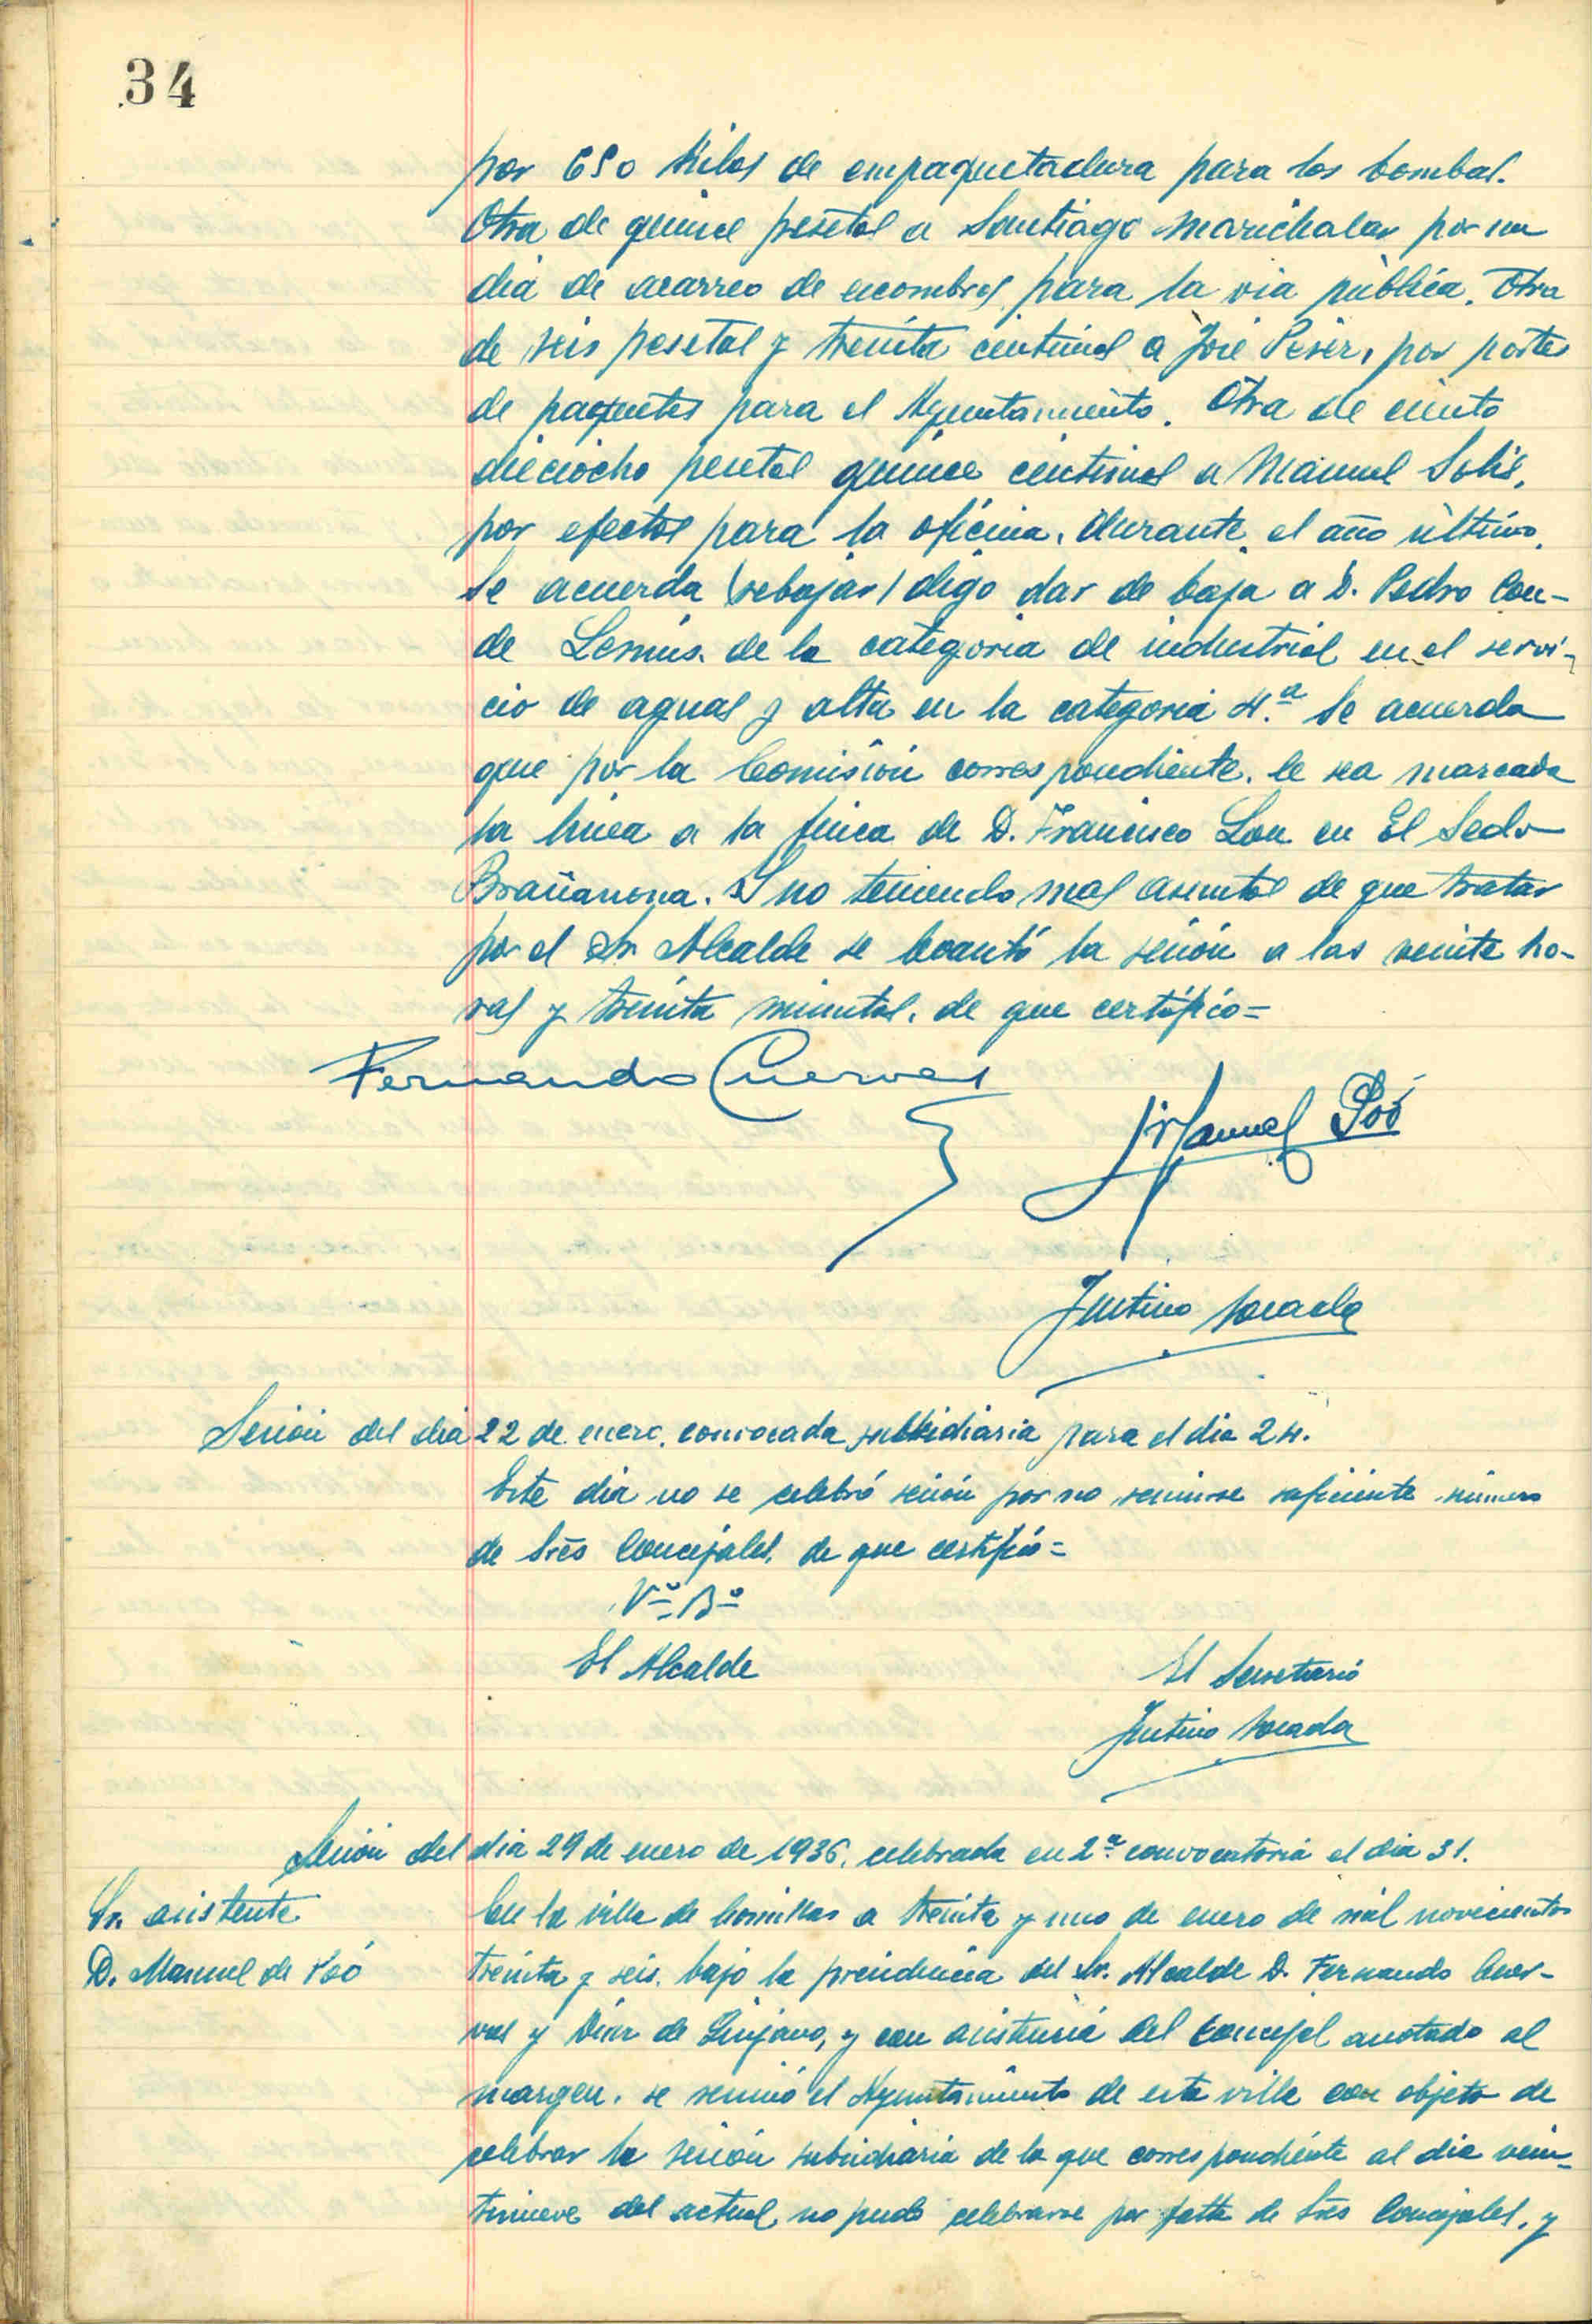 34
por 650 kilos de empaquetadura para las bombas.
Otra de quince pesetas a Santiago Marichalar por un
dia de acarreo de escombros para la via pública. Otra
de seis pesetas y treinta centimos a José por portes
de paquetes para el Ayuntamiento. Otra de ciento
dieciocho pesetas quince centimos a Manuel Solis,
por efectos para la oficina, durante el año último.
Se acuerda (rebajar) digo dar de baja a D. Pedro Con-
de Lemus de la categoria de industrial en el servi-
cio de aguas y alta en la categoria 4.ª Se acuerda
que por la Comisión correspondiente, le sea marcada
la linea a la finca de D. Francisco Lou en El Sedo
Brañanona. Y no teniendo mas asuntos de que tratar
por el Sr. Alcalde se levantó la sesión a las veinte ho-
ras y treinta minutos, de que certifico=
Fernando Cuervas
Manuel Poó
Justino
Sesión del dia 22 de enero, convocada subsidiaria para el dia 24.
Este dia no se celebró sesión por no reunirse suficiente número
de Sres Concejales, de que certifico=
Vº Bº
El Alcalde
El Secretario
Justino
Sesión del dia 29 de enero de 1936, celebrada en 2ª convocatoria el dia 31.
Sr. asistente
D. Manuel de Poó
En la villa de Comillas a treinta y uno de enero de mil novecientos
treinta y seis, bajo la presidencia del Sr. Alcalde D. Fernando Cuer-
vas y Diaz de Quijano, y con asistencia del Concejal anotado al
margen, se reunió el Ayuntamiento de esta villa con objeto de
celebrar la sesión subsidiaria de la que correspondiente al dia vein-
tinueve del actual no pudo celebrarse por falta de Sres Concejales, y